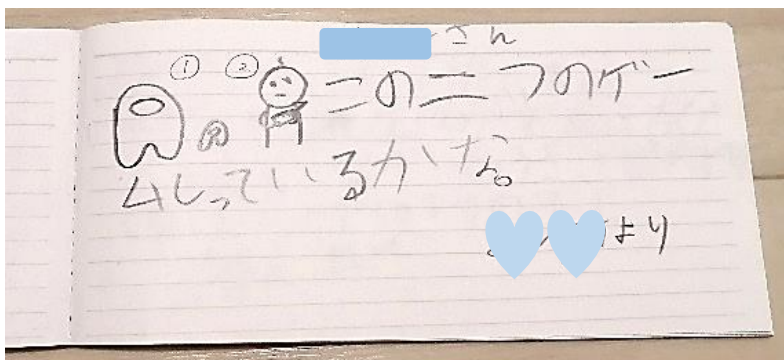 さん
① ② この二つのゲー
ムしっているかな。
より